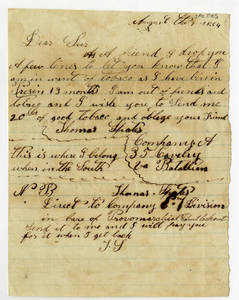 August the 9 1864
Dear Sir
As A friend I drop you
A few lines to let you know that I
am in went of tobaco as I have bin in
Preson 13 months I am out of funds and
tobaco and I write you to Send me
20 lbs of good tobaco and oblige your Friend
Thomas
Company A
this is where I belong 35 Cavelry
when in the South Va Batallion
N B Thomas
Direct to Company 6 7 Division
in care of Provomarshal
Send it to me and I will pay you
for it when I get back
T S